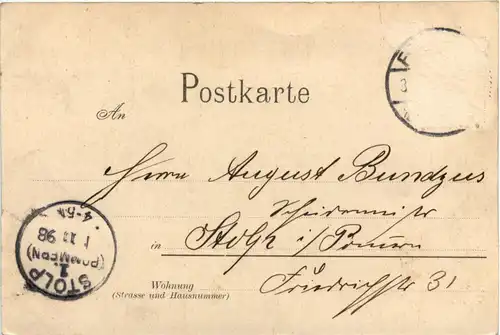 Postkarte
An
Herrn August Bundzus
in Stolp i/Pommern
Wohnung
(Strasse und Hausnummer)
Friedrichstr 31
STOLP
(POMMERN)
1
98